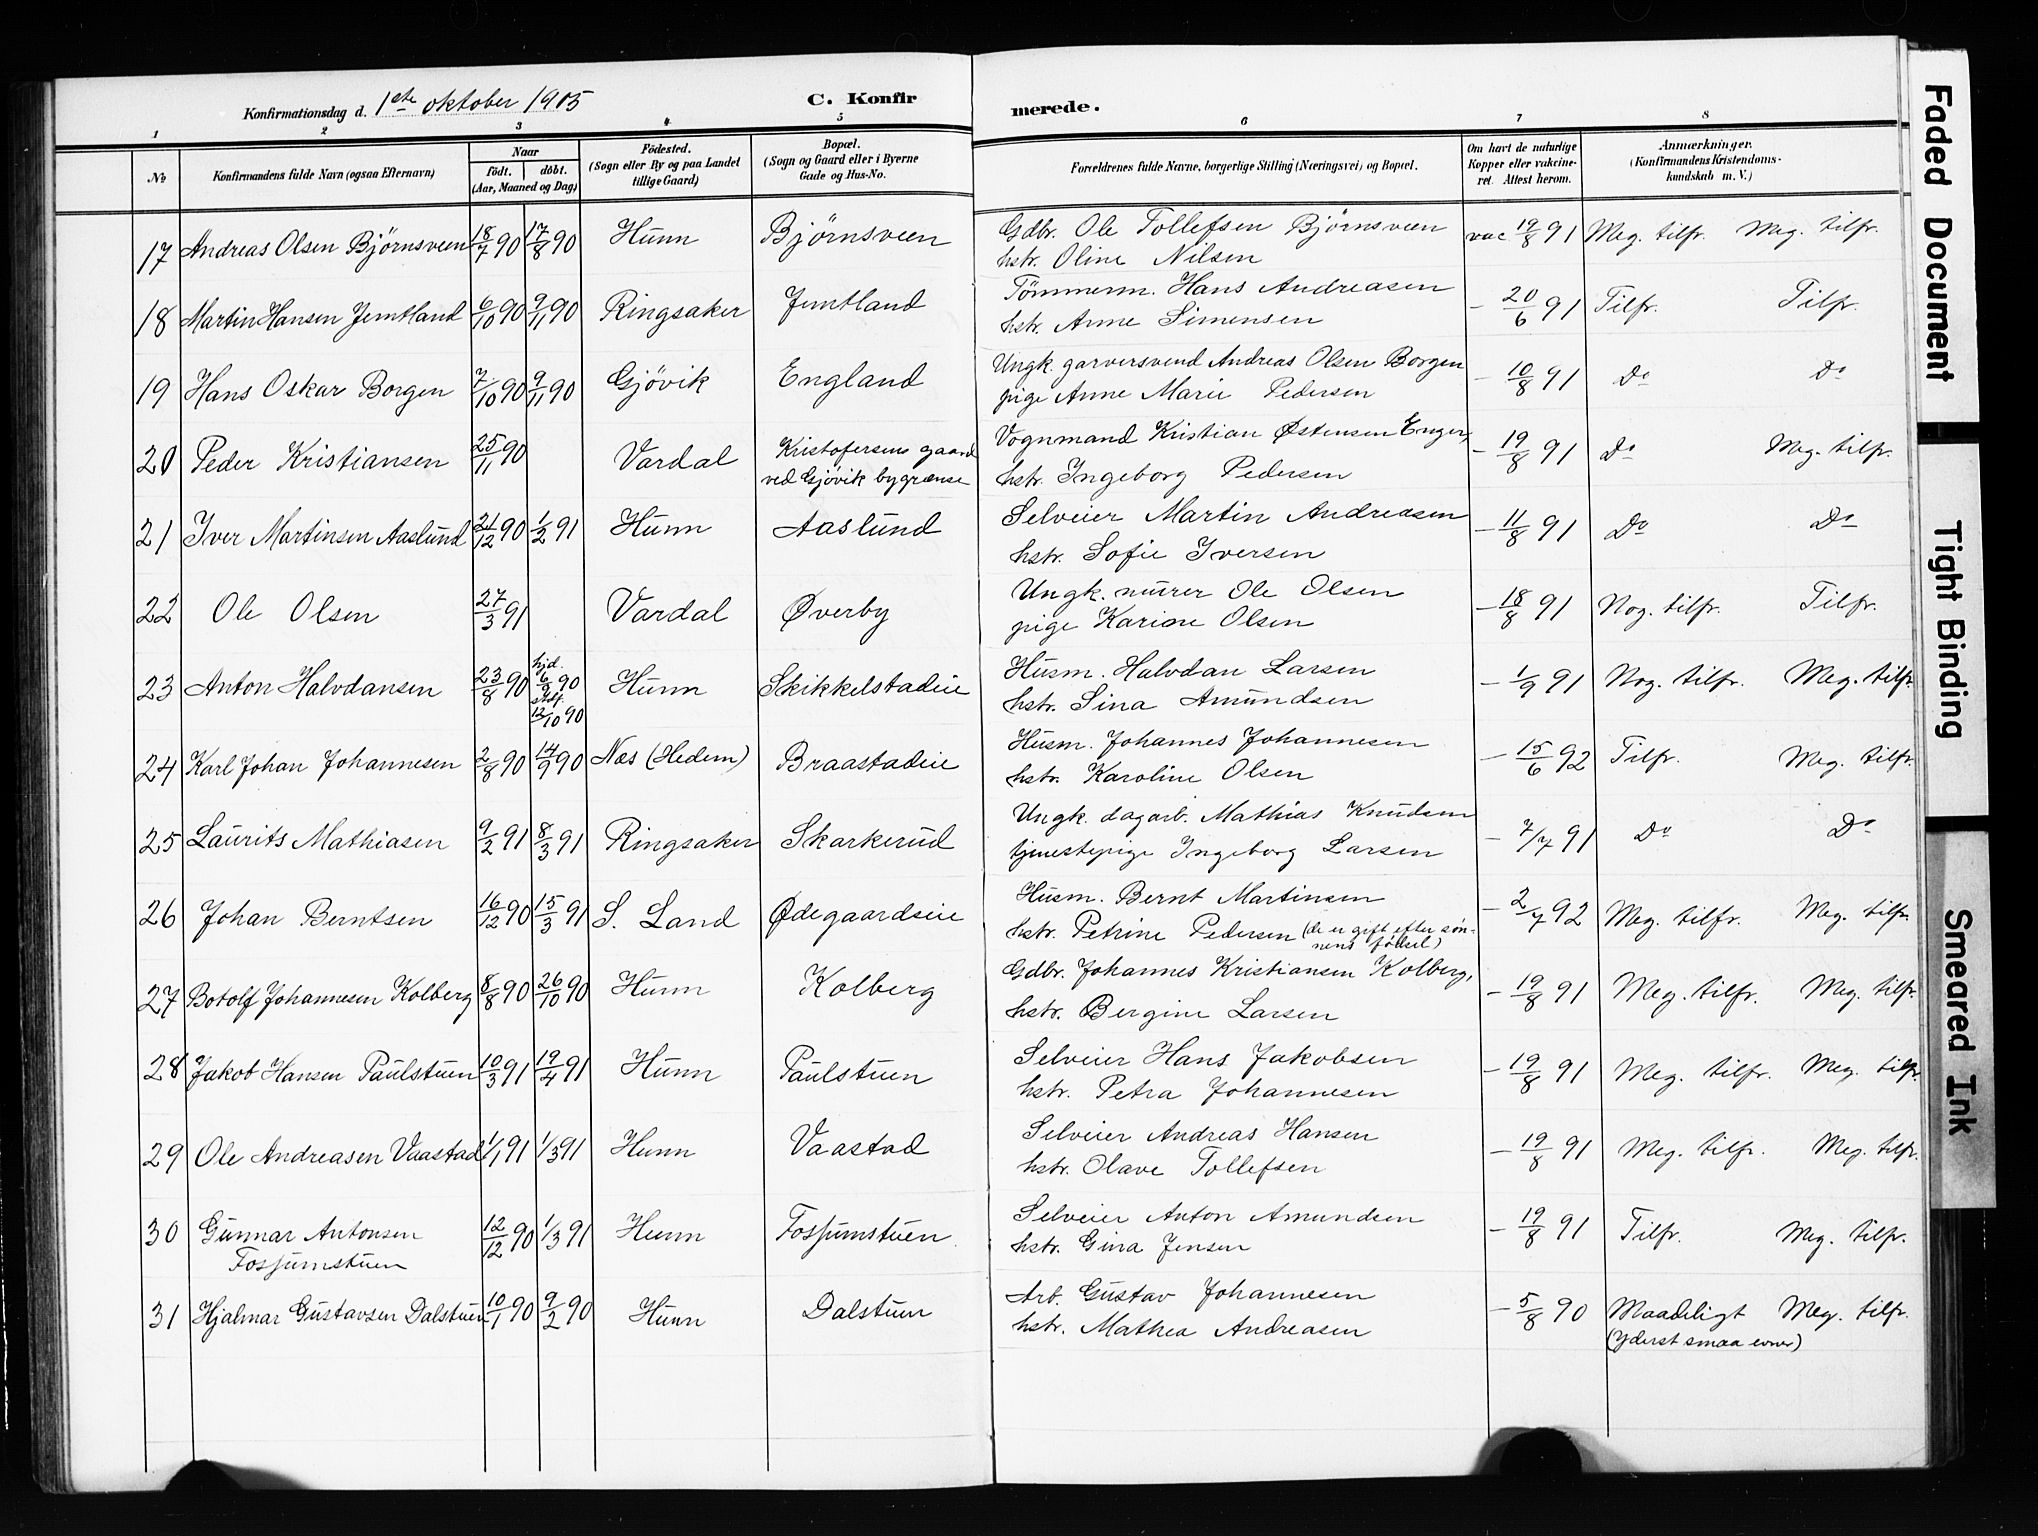 Konfirmationsdag d. 1ste oktober 1905 C. Konfirmerede.
1 2 3 4 5 6 7 8
No Konfirmandens fulde Navn (ogsaa Efternavn) Naar født. døbt. (Aar, Maaned og Dag) Fødested. (Sogn eller By og paa Landet tillige Gaard) Bopæl. (Sogn og Gaard eller i Byerne Gade og Hus-No. Forældrenes fulde Navne, borgerlige Stilling (Næringsvei) og Bopæl. Om havt de naturlige Kopper eller vakcineret. Attest herom. Anmærkninger. (Konfirmandens Kristendomskundskab m. V.)
17 Andreas Olsen Bjørnsveen 18/7 90 17/8 90 Hunn Bjørnsveen Gdbr. Ole Tollefsen Bjørnsveen vac 19/8 91 Meg. tilfr. Meg. tilfr.
hstr. Oline Nilsen
18 Martin Hansen Jemtland 6/10 90 9/11 90 Ringsaker Jemtland Tømmerm. Hans Andreasen - 20/6 91 Tilfr. Tilfr.
hstr. Anne Simensen
19 Hans Oskar Borgen 7/10 90 9/11 90 Gjøvik England Ungk. garversvend Andreas Olsen Borgen - 10/8 91 Do Do
pige Anne Marie Pedersen
20 Peder Kristiansen 25/11 90 Vardal Kristofersens gaard Vognmand Kristian Østensen Enger, - 19/8 91 Do Meg. tilfr.
ved Gjøvik bygrænse hstr. Ingeborg Pedersen
21 Iver Martinsen Aaslund 21/12 90 1/2 91 Hunn Aaslund Selveier Martin Andreasen - 11/8 91 Do Do
hstr. Sofie Iversen
22 Ole Olsen 27/3 91 Vardal Øverby Ungk. murer Ole Olsen - 18/8 91 Nog. tilfr. Tilfr.
pige Karine Olsen
23 Anton Halvdansen 23/8 90 hjd. 6/9 90 stdf. 12/10 90 Hunn Skikkelstadeie Husm. Halvdan Larsen - 1/9 91 Nog. tilfr. Meg. tilfr.
hstr. Sina Amundsen
24 Karl Johan Johannesen 2/8 90 14/9 90 Nes (Hedem) Braastadeie Husm. Johannes Johannesen - 15/6 92 Tilfr. Meg. tilfr.
hstr. Karoline Olsen
25 Laurits Mathiasen 9/2 91 8/3 91 Ringsaker Skarkerud Ungk. dagarb. Mathias Knudsen - 7/7 91 Do Do
tjenestepige Ingeborg Larsen
26 Johan Berntsen 16/12 90 15/3 91 S. Land Ødegaardseie Husm. Bernt Martinsen - 2/7 92 Meg. tilfr. Meg. tilfr.
hstr. Petrine Pedersen (de er gift efter sønnens fødsel)
27 Botolf Johannesen Kolberg 8/8 90 26/10 90 Hunn Kolberg Gdbr. Johannes Kristiansen Kolberg, - 19/8 91 Meg. tilfr. Meg. tilfr.
hstr. Bergine Larsen
28 Jakob Hansen Paulstuen 10/3 91 19/4 91 Hunn Paulstuen Selveier Hans Jakobsen - 19/8 91 Meg. tilfr. Meg. tilfr.
hstr. Petra Johannesen
29 Ole Andreasen Vaastad 1/1 91 1/3 91 Hunn Vaastad Selveier Andreas Hansen - 19/8 91 Meg. tilfr. Meg. tilfr.
hstr. Olave Tollefsen
30 Gunnar Antonsen 12/12 90 1/3 91 Hunn Fossumstuen Selveier Anton Amundsen - 19/8 91 Tilfr. Meg. tilfr.
Fossumstuen hstr. Gina Jensen
31 Hjalmar Gustavsen Dalstuen 10/1 90 9/2 90 Hunn Dalstuen Arb. Gustav Johannesen - 5/8 90 Maadeligt Meg. tilfr.
hstr. Mathea Andreasen (yderst smaa evner)
Faded Document
Tight Binding
Smeared Ink